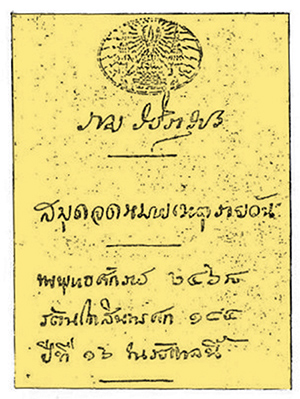 ราม วชิราวุธ
สมุดจดหมายเหตุรายวัน
พระพุทธศักราช ๒๔๖๘
รัตนโกสินทรศก ๑๔๔
ปีที่ ๑๖ ในรัชกาลนี้